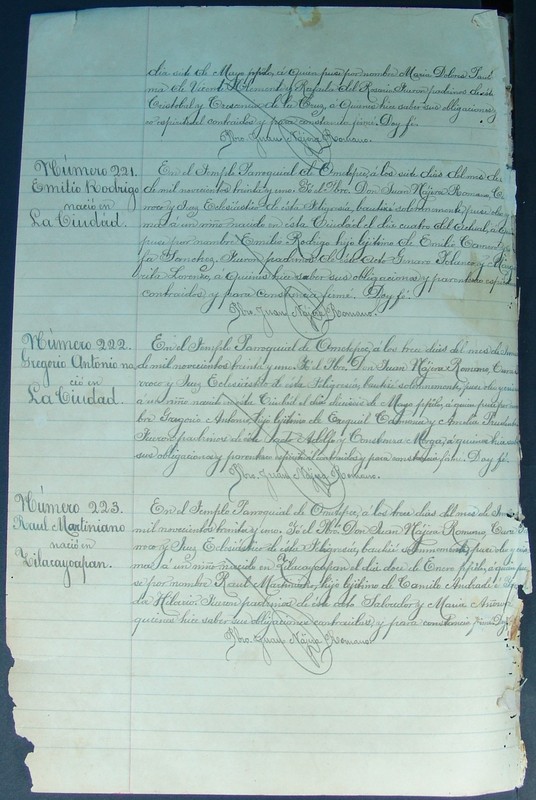 día seis de Mayo ppdo, á quien puse por nombre María Dolores
de Vicente Clemente y Rafaela del Rosario fueron padrinos de éste
Cristobal y Crescencia de la Cruz, á quienes hice saber sus obligaciones
espiritual contraidos y para constancia firmé. Doy fé.
Pbro. Juan Nájera Romano.
Número 221.
Emilio Rodrigo
nació en
La Ciudad.
En el Templo Parroquial de Ometepec, á los siete días del mes de
de mil novecientos treinta y uno: Yo el Pbro. Don Juan Nájera Romano, Cu
rroco y Juez Eclesiástico de ésta Feligresía, bauticé solemnemente, puse óleo y
á un niño nacido en ésta Ciudad el día cuatro del actual, á
puse por nombre Emilio Rodrigo hijo legítimo de Emilio
fa Sanchez, fueron padrinos de éste acto Genaro y
rita Lorenzo, á quienes hice saber sus obligaciones y parentesco
contraidos y para constancia firmé. Doy fé.
Pbro. Juan Nájera Romano.
Número 222.
Gregorio Antonio na
ció en
La Ciudad.
En el Templo Parroquial de Ometepec, á los tres días del mes de
de mil novecientos treinta y uno: Yo el Pbro. Don Juan Nájera Romano, Cu
rroco y Juez Eclesiástico de ésta Feligresía, bauticé solemnemente, puse óleo y
á un niño nacido en ésta Ciudad el día de Mayo ppdo, á quien puse por nom
bre Gregorio Antonio, hijo legítimo de Ezequiel y Amelia
fueron padrinos de éste acto Adolfo y Constanza Moga, á quienes hice
sus obligaciones y parentesco espiritual contraidos y para constancia firmé. Doy fé.
Pbro. Juan Nájera Romano.
Número 223.
Raúl Martiniano
nació en
Zilacayoapan.
En el Templo Parroquial de Ometepec, á los tres días del mes de
mil novecientos treinta y uno: Yo el Pbro. Don Juan Nájera Romano, Cura
rroco y Juez Eclesiástico de ésta Feligresía, bauticé solemnemente, puse óleo y
ma á un niño nacido en Zilacayoapan el día doce de Enero ppdo, á quien
se por nombre Raúl Martiniano, hijo legítimo de Camilo Andrade é
da Hilario fueron padrinos de éste acto Salvador y María
quienes hice saber sus obligaciones contraidas y para constancia firmé. Doy
Pbro. Juan Nájera Romano.